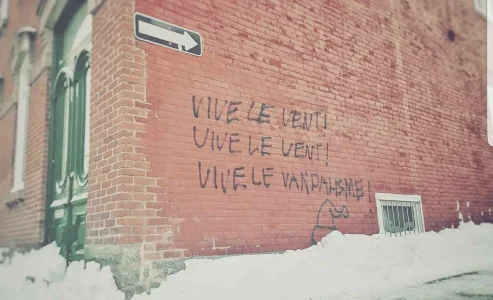 VIVE LE VENT!
VIVE LE VENT!
VIVE LE VANDALISME!